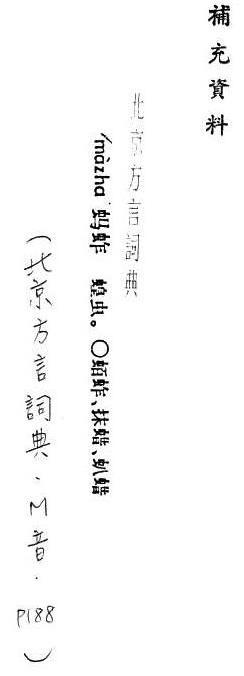 補充資料
北京方言詞典
/màzha 蚂蚱　蝗虫。〇蛨蚱、抹蜡、虯蜡
(北京方言詞典.M音.P188)